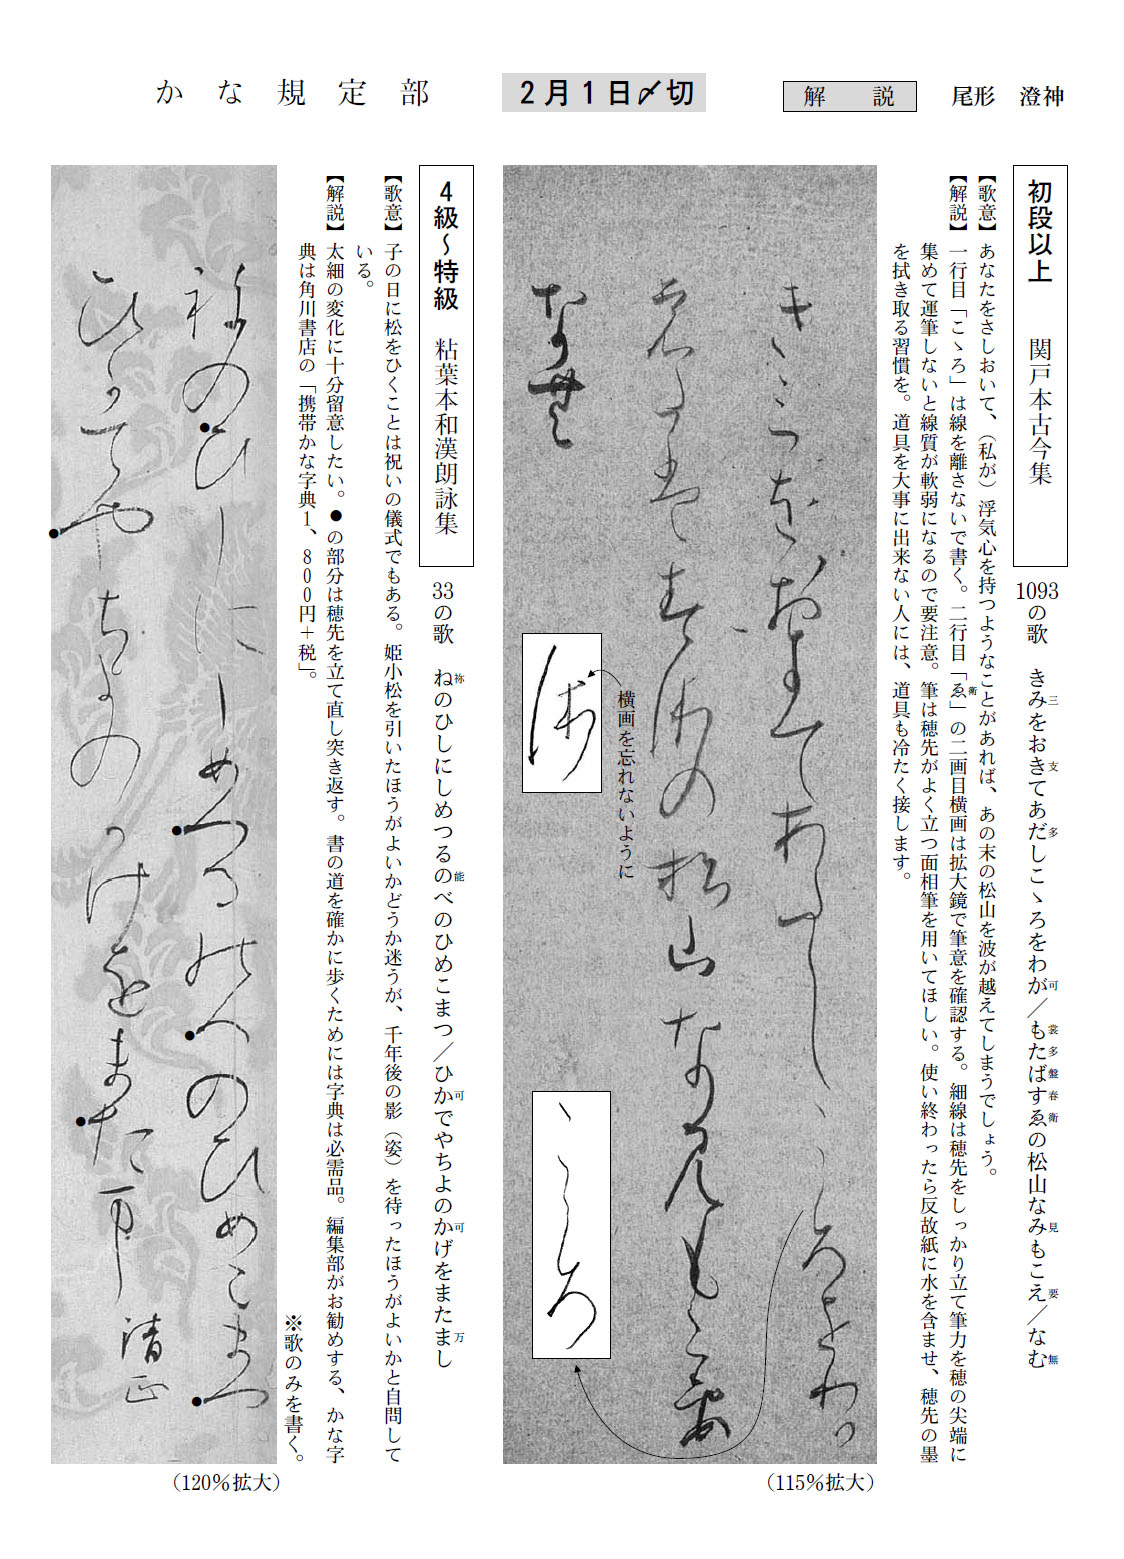 かな規定部
2月1日〆切
解説
尾形 澄神
初段以上 関戸本古今集
1093の歌 きみ三をおき支てあだ多しこゝろをわが可／も裳た多ば盤す春ゑ衛の松山なみ見もこえ要／なむ無
【歌意】あなたをさしおいて、（私が）浮気心を持つようなことがあれば、あの末の松山を波が越えてしまうでしょう。
【解説】一行目「こゝろ」は線を離さないで書く。二行目「ゑ衛」の二画目横画は拡大鏡で筆意を確認する。細線は穂先をしっかり立て筆力を穂の尖端に
集めて運筆しないと線質が軟弱になるので要注意。筆は穂先がよく立つ面相筆を用いてほしい。使い終わったら反故紙に水を含ませ、穂先の墨
を拭き取る習慣を。道具を大事に出来ない人には、道具も冷たく接します。
横画を忘れないように
（115％拡大）
4級～特級 粘葉本和漢朗詠集
33の歌 ね祢のひしにしめつるの能べのひめこまつ／ひか可でやちよのか可げをまたま万し
【歌意】子の日に松をひくことは祝いの儀式でもある。姫小松を引いたほうがよいかどうか迷うが、千年後の影（姿）を待ったほうがよいかと自問して
いる。
【解説】太細の変化に十分留意したい。●の部分は穂先を立て直し突き返す。書の道を確かに歩くためには字典は必需品。編集部がお勧めする、かな字
典は角川書店の「携帯かな字典1、800円＋税」。
※歌のみを書く。
（120％拡大）